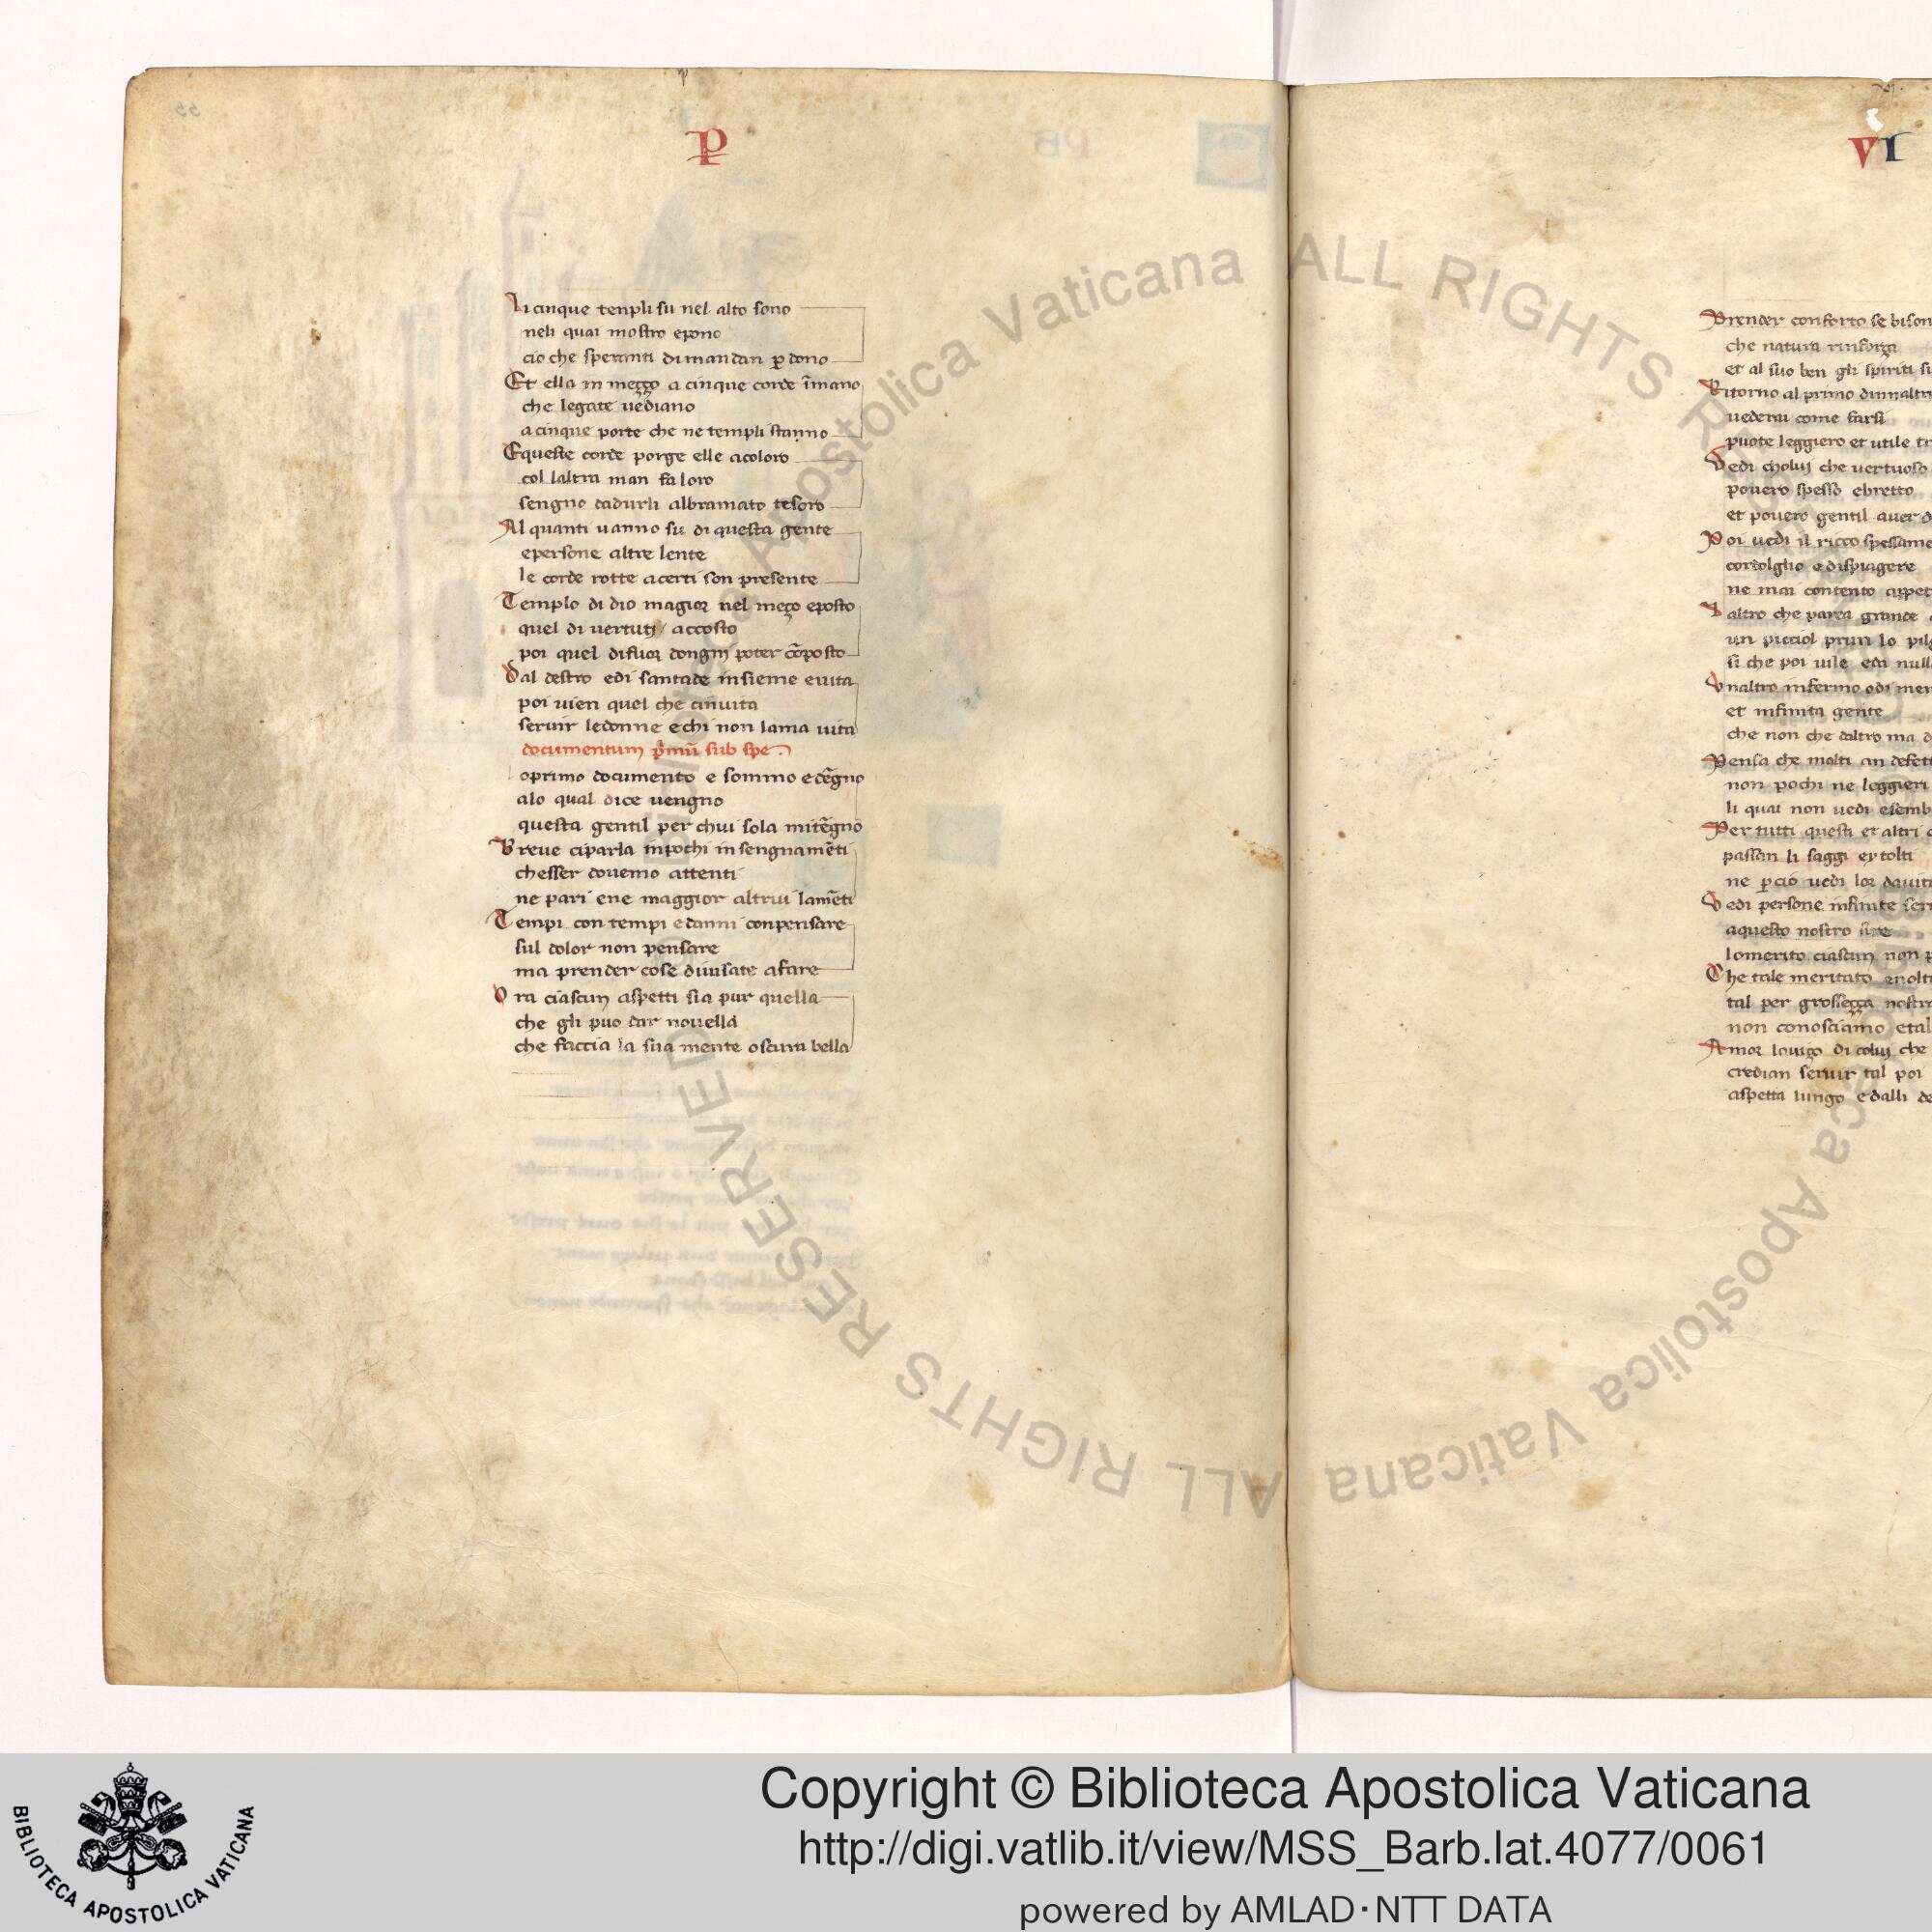 P
Li cinque templi su nel alto sono
neli quai mostro e pono
cio che speranti dimandan p dono
Et ella in mezzo a cinque corde ī mano
che legate uediano
a cinque porte che ne templi stanno
E queste corde porge elle a coloro
col laltra man fa loro
sengno cadurli al bramato tesoro
Al quanti uanno su di questa gente
e persone altre lente
le corde rotte a certi son presente
Templo di dio magior nel mezo e posto
quel di uertuti accosto
poi quel di fuor dongni poter cōposto
Dal destro e di santade insieme e uita
poi uien quel che cinuita
seruir le donne e chi non lama uita
documentum p̄mū sub spe
o primo documento e sommo e dēgno
alo qual dice uengno
questa gentil per chui sola mi tēgno
Breue ci parla in pochi insengnamēti
chesser douemo attenti
ne pari e ne maggior altrui lamēti
Tempi con tempi e danni conpensare
sul dolor non pensare
ma prender cose diuisate a fare
Ora ciascun aspetti sia pur quella
che gli puo dar nouella
che faccia la sua mente oscura bella
VI
Prender conforto se bison
che natura rinforza
et al suo ben gli spiriti
Ritorno al primo
uederai come farsi
puote leggiero et utile
Vedi cholui che uertuoso
pouero spesso e bretto
et pouero gentil auer
Poi uedi il ricco
cordolglio e dispiagere
ne mai contento
altro che parea grande
un picciol prun lo
si che poi uile ed a
Vnaltro infermo odi
et infinita gente
che non che daltro ma
Pensa che molti an
non pochi ne leggieri
li quai non uedi
Per tutti questi et altri
passan li saggi
ne p cio uedi lor
Vedi persone infinite
a questo nostro sire
lo merito ciascun non
Che tale meritato
tal per grossezza nostra
non conosciamo
Amor louigo di colui che
credian seruir tal poi
aspetta lungo e dalli
ALL RIGHTS RESERVED
Biblioteca Apostolica Vaticana
Copyright © Biblioteca Apostolica Vaticana
http://digi.vatlib.it/view/MSS_Barb.lat.4077/0061
powered by AMLAD·NTT DATA
BIBLIOTECA APOSTOLICA VATICANA